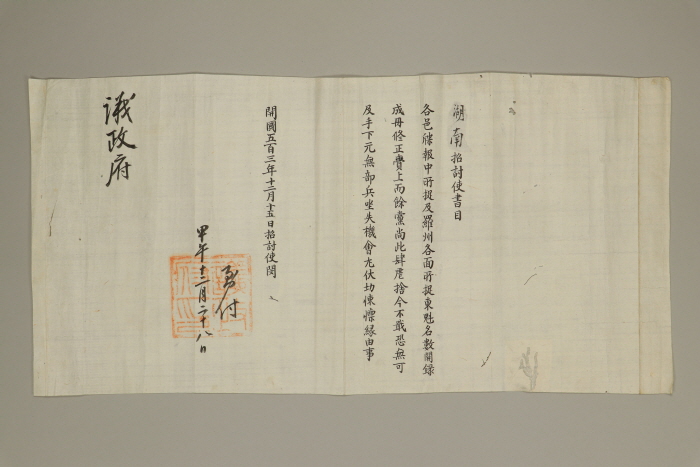 湖南招討使書目
各邑牒報中所捉及羅州各面所捉東魁名數開錄
成冊修正賫上而餘黨尚此肆虐捨今不戢恐無可
及手下元無部兵坐失機會尤伏切悚懍緣由事
開國五百三年十二月十五日招討使閔
到付
甲午十二月二十八日
議政府